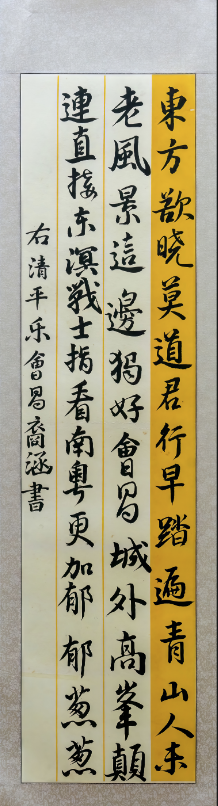 東方欲曉莫道君行早踏遍青山人未
老風景這邊獨好會昌城外高峯顛
連直接东溟戰士指看南粵更加郁郁葱葱
右清平乐會昌裔涵書